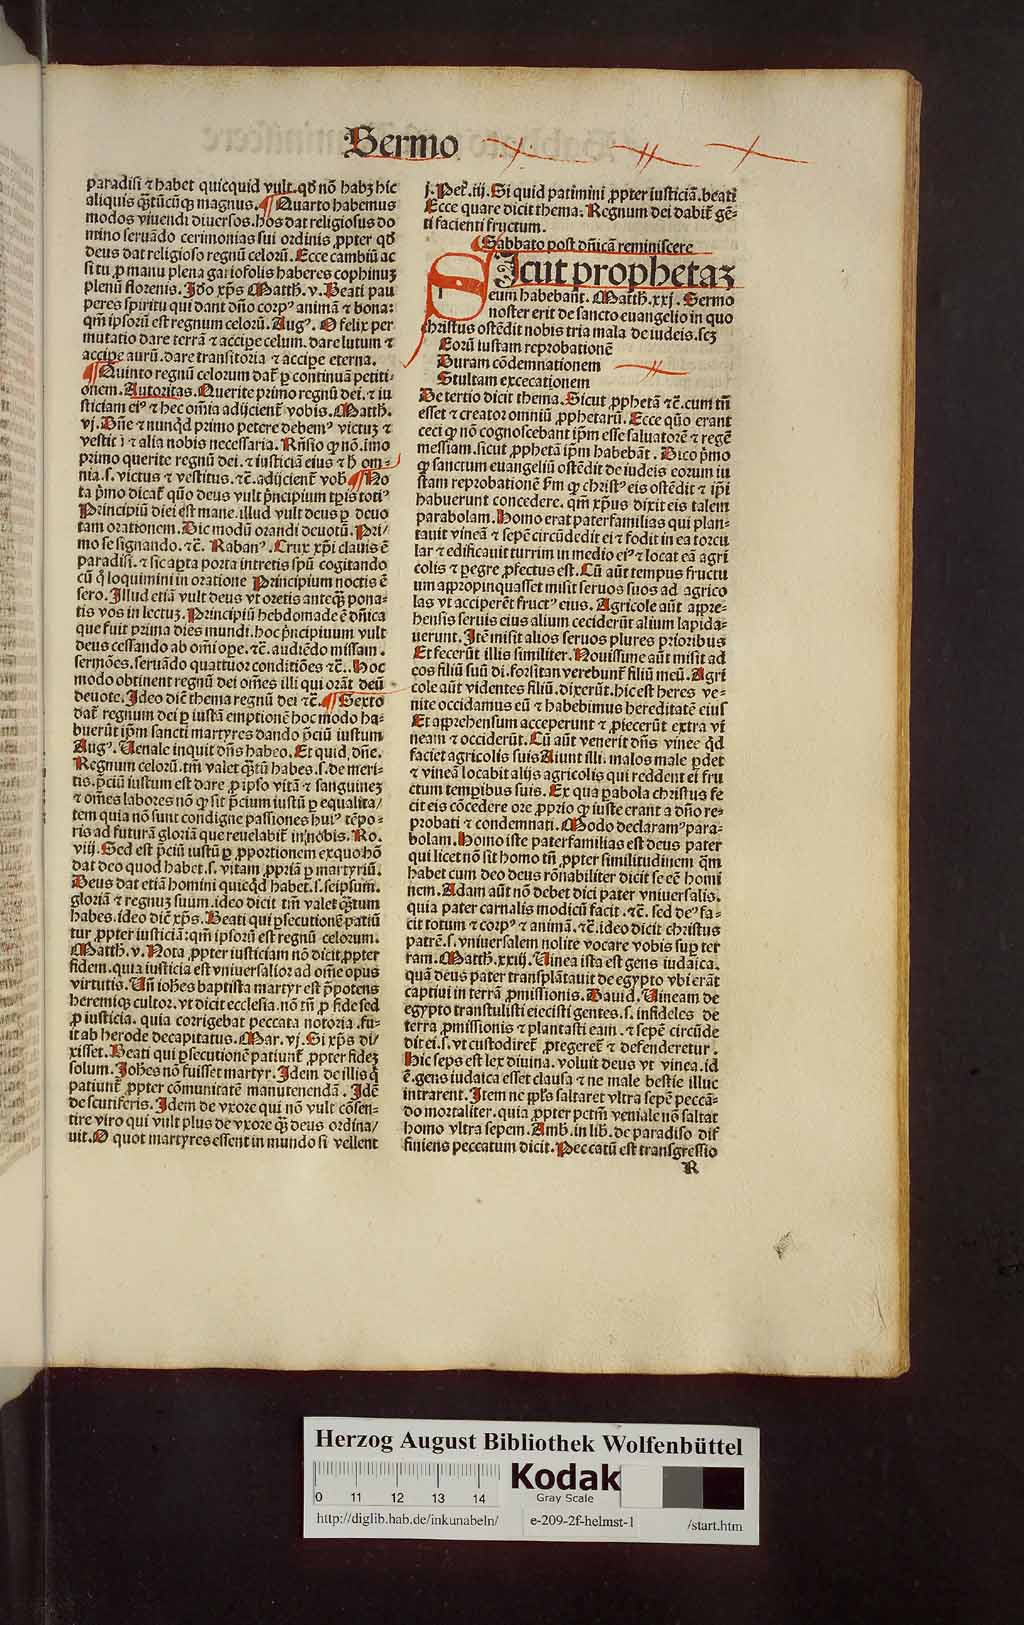 Sermo
paradisi ⁊ habet quicquid vult. qđ nō habꝫ hic
aliquis q̄ꝫtūcūqꝫ magnus. ¶ Quarto habemus
modos viuendi diuersos. hos dat religiosus do
mino seruādo cerimonias sui ordinis ꝓpter qđ
deus dat religioso regnū celoꝝ. Ecce cambiū ac
si tu ꝓ manu plena gariofolis haberes cophinuꝫ
plenū florenis. Jdo xp̄s Matth. v. Beati pau
peres spiritu qui dant dn̄o corpꝰ animā ⁊ bona:
qm̄ ipsoꝝ est regnum celoꝝ. Augꝰ. O felix per
mutatio dare terrā ⁊ accipe celum. dare lutum ⁊
accipe aurū. dare transitoria ⁊ accipe eterna.
¶ Quinto regnū celorum dat᷑ ꝑ continuā petiti-
onem. Autoritas. Querite primo regnū dei. ⁊ iu
sticiam eiꝰ ⁊ hec om̄ia adijcient᷑ vobis. Matth.
vj. Dn̄e ⁊ nunqđ primo petere debemꝰ victuꝫ ⁊
vestit̄ ī ⁊ alia nobis necessaria. Rn̄sio ꝙ nō. īmo
primo querite regnū dei. ⁊ iusticiā eius ⁊ h̄ om-
nia. s. victus ⁊ vestitus. ⁊c̄. adijcient᷑ vob̄ ¶ No
ta p̄mo dicat᷑ quō deus vult p̄ncipium tꝑis totiꝰ
Principiū diei est mane. illud vult deus ꝑ deuo
tam orationem. Dic modū orandi deuotū. Pri/
mo se signando. ⁊c̄. Rabanꝰ. Crux xp̄i clauis ē
paradisi. ⁊ sic aꝑta porta intretis spū cogitando
cū q̊ loquimini in oratione Principium noctis ē
sero. Jllud etiā vult deus vt oretis anteqꝫ pona-
tis vos in lectuꝫ. Principiū hebdomade ē dn̄ica
que fuit prima dies mundi. hoc p̄ncipiuium vult
deus cessando ab om̄i oꝑe. ⁊c̄. audiēdo missam.
sermōes. seruādo quattuor conditiōes ⁊c̄.. Hoc
modo obtinent regnū dei om̄es illi qui orāt deū
deuote. Jdeo dic̄ thema regnū dei ⁊c̄. ¶ Sexto
dat᷑ regnum dei ꝑ iustā emptionē hoc modo ha-
buerūt ip̄m sancti martyres dando p̄ciū iustum
Augꝰ. Uenale inquit dn̄s habeo. Et quid dn̄e.
Regnum celoꝝ. tm̄ valet q̄ꝫtū habes. s. de meri-
tis. p̄ciū iustum est dare ꝓ ipso vitā ⁊ sanguineꝫ
⁊ om̄es labores nō ꝙ sit p̄cium iustū ꝑ equalita/
tem quia nō sunt condigne passiones huiꝰ tēpo-
ris ad futurā gloriā que reuelabit᷑ in nobis. Ro.
viij. Sed est p̄ciū iustū ꝑ ꝓportionem exquo hō
dat deo quod habet. s. vitam ꝓpriā ꝑ martyriū.
Deus dat etiā homini quicqđ habet. s. seipsum.
gloriā ⁊ regnuꝫ suum. ideo dicit tm̄ valet q̄ꝫtum
habes. ideo dic̄ xp̄s. Beati qui ꝑsecutionē patiū
tur ꝓpter iusticiā: qm̄ ipsoꝝ est regnū celorum.
Matth. v. Nota ꝓpter iusticiam nō dicit ꝓpter
fidem. quia iusticia est vniuersalior ad om̄e opus
virtutis. Un̄ ioh̄es baptista martyr est p̄potens
heremiqꝫ cultor. vt dicit ecclesia. nō tn̄ ꝓ fide sed
ꝓ iusticia. quia corrigebat peccata notoria. fu-
it ab herode decapitatus. Mar. vj. Si xp̄s di/
xisset. Beati qui ꝑsecutionē patiunt᷑ ꝓpter fideꝫ
solum. Joh̄es nō fuisset martyr. Jdem de illis q̄
patiunt᷑ ꝓpter cōmunitatē manutenendā. Jdē
de scutiferis. Jdem de vxore qui nō vult cōsen-
tire viro qui vult plus de vxore qꝫ deus ordina/
uit. O quot martyres essent in mundo si vellent
j. Pet᷑. iij. Si quid patimini ꝓpter iusticiā. beati
Ecce quare dicit thema. Regnum dei dabit᷑ gē-
ti facienti fructum.
¶ Sabbato post dn̄icā reminiscere
SJcut prophetaꝫ
eum habebant. Matth. xxj. Sermo
noster erit de sancto euangelio in quo
christus ostēdit nobis tria mala de iudeis. scꝫ
Eorū iustam reprobationē
Duram cōdemnationem
Stultam excecationem
De tertio dicit thema. Sicut ꝓphetā ⁊c̄. cum tn̄
esset ⁊ creator omniū ꝓphetarū. Ecce quō erant
ceci ꝙ nō cognoscebant ip̄m esse saluatorē ⁊ regē
messiam. sicut ꝓphetā ip̄m habebāt. Dico p̄mo
ꝙ sanctum euangeliū ostēdit de iudeis eorum iu
stam reprobationē s̄m ꝙ christꝰ eis ostēdit ⁊ ip̄i
habuerunt concedere. qm̄ xp̄us dixit eis talem
parabolam. Homo erat paterfamilias qui plan-
tauit vineā ⁊ sepē circūdedit ei ⁊ fodit in ea torcu
lar ⁊ edificauit turrim in medio eiꝰ ⁊ locat eā agri
colis ⁊ ꝑegre ꝓfectus est. Cū aūt tempus fructu
um appropinquasset misit seruos suos ad agrico
las vt acciperēt fructꝰ eius. Agricole aūt appre-
hensis seruis eius alium ceciderūt alium lapida-
uerunt. Jtē misit alios seruos plures prioribus
Et fecerūt illis similiter. Nouissime aūt misit ad
eos filiū suū di. forsitan verebunt᷑ filiū meū. Agri
cole aūt videntes filiū. dixerūt. hic est heres ve-
nite occidamus eū ⁊ habebimus hereditatē eius
Et apprehensum acceperunt ⁊ ꝓiecerūt extra vi
neam ⁊ occiderūt. Cū aūt venerit dn̄s vinee qđ
faciet agricolis suis Aiunt illi. malos male ꝑdet
⁊ vineā locabit alijs agricolis qui reddent ei fru
ctum tempibus suis. Ex qua ꝑabola christus fe
cit eis cōcedere ore ꝓprio ꝙ iuste erant a dn̄o re-
probati ⁊ condemnati. Modo declaramꝰ para-
bolam. Homo iste paterfamilias est deus pater
qui licet nō sit homo tn̄ ꝓpter similitudinem qm̄
habet cum deo deus rōnabiliter dicit se eē homi
nem. Adam aūt nō debet dici pater vniuersalis.
quia pater carnalis modicū facit. ⁊c̄. sed deꝰ fa-
cit totum ⁊ corpꝰ ⁊ animā. ⁊c̄. ideo dicit christus
patrē. s. vniuersalem nolite vocare vobis suꝑ ter
ram. Matth. xxiij. Uinea ista est gens iudaica.
quā deus pater transplātauit de egypto vbi erāt
captiui in terrā ꝓmissionis. Dauid. Uineam de
egypto transtulisti eiecisti gentes. s. infideles de
terra ꝓmissionis ⁊ plantasti eam. ⁊ sepē circūde
dit ei. s. vt custodiret᷑ ꝓtegeret᷑ ⁊ defenderetur.
Hic seps est lex diuina. voluit deus vt vinea. id
ē. gens iudaica esset clausa ⁊ ne male bestie illuc
intrarent. Jtem ne pp̄ls saltaret vltra sepē peccā-
do mortaliter. quia ꝓpter pctm̄ veniale nō saltat
homo vltra sepem. Amb. in lib. de paradiso dif
finiens peccatum dicit. Peccatū est transgressio
R
Herzog August Bibliothek Wolfenbüttel
0 11 12 13 14
Kodak
Gray Scale
http://diglib.hab.de/inkunabeln/ e-209-2f-helmst-1 /start.htm